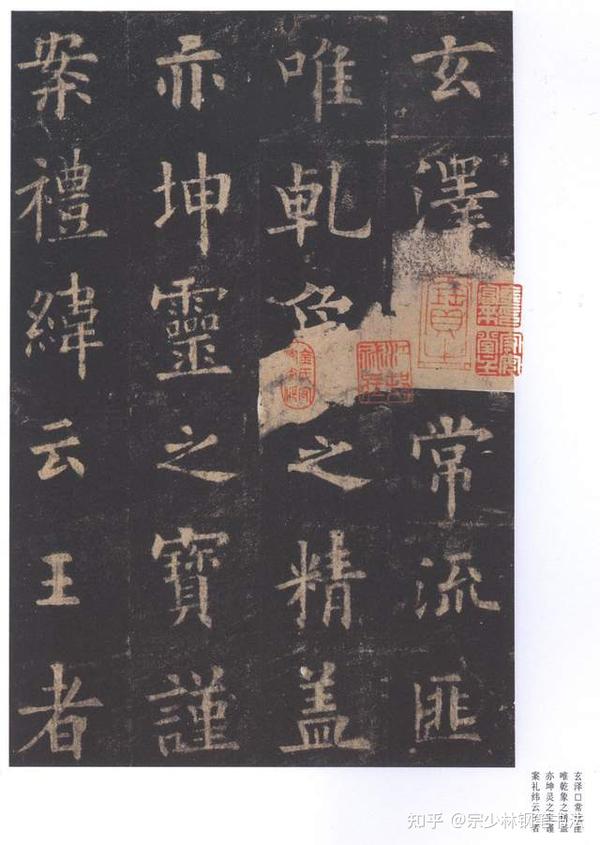 玄澤常流匪
唯乹象之精盖
亦坤靈之寶謹
案禮緯云王者
玄泽口常流匪
唯乾象之精盖
亦坤灵之宝谨
案礼纬云王者
知乎 @宗少林钢笔书法